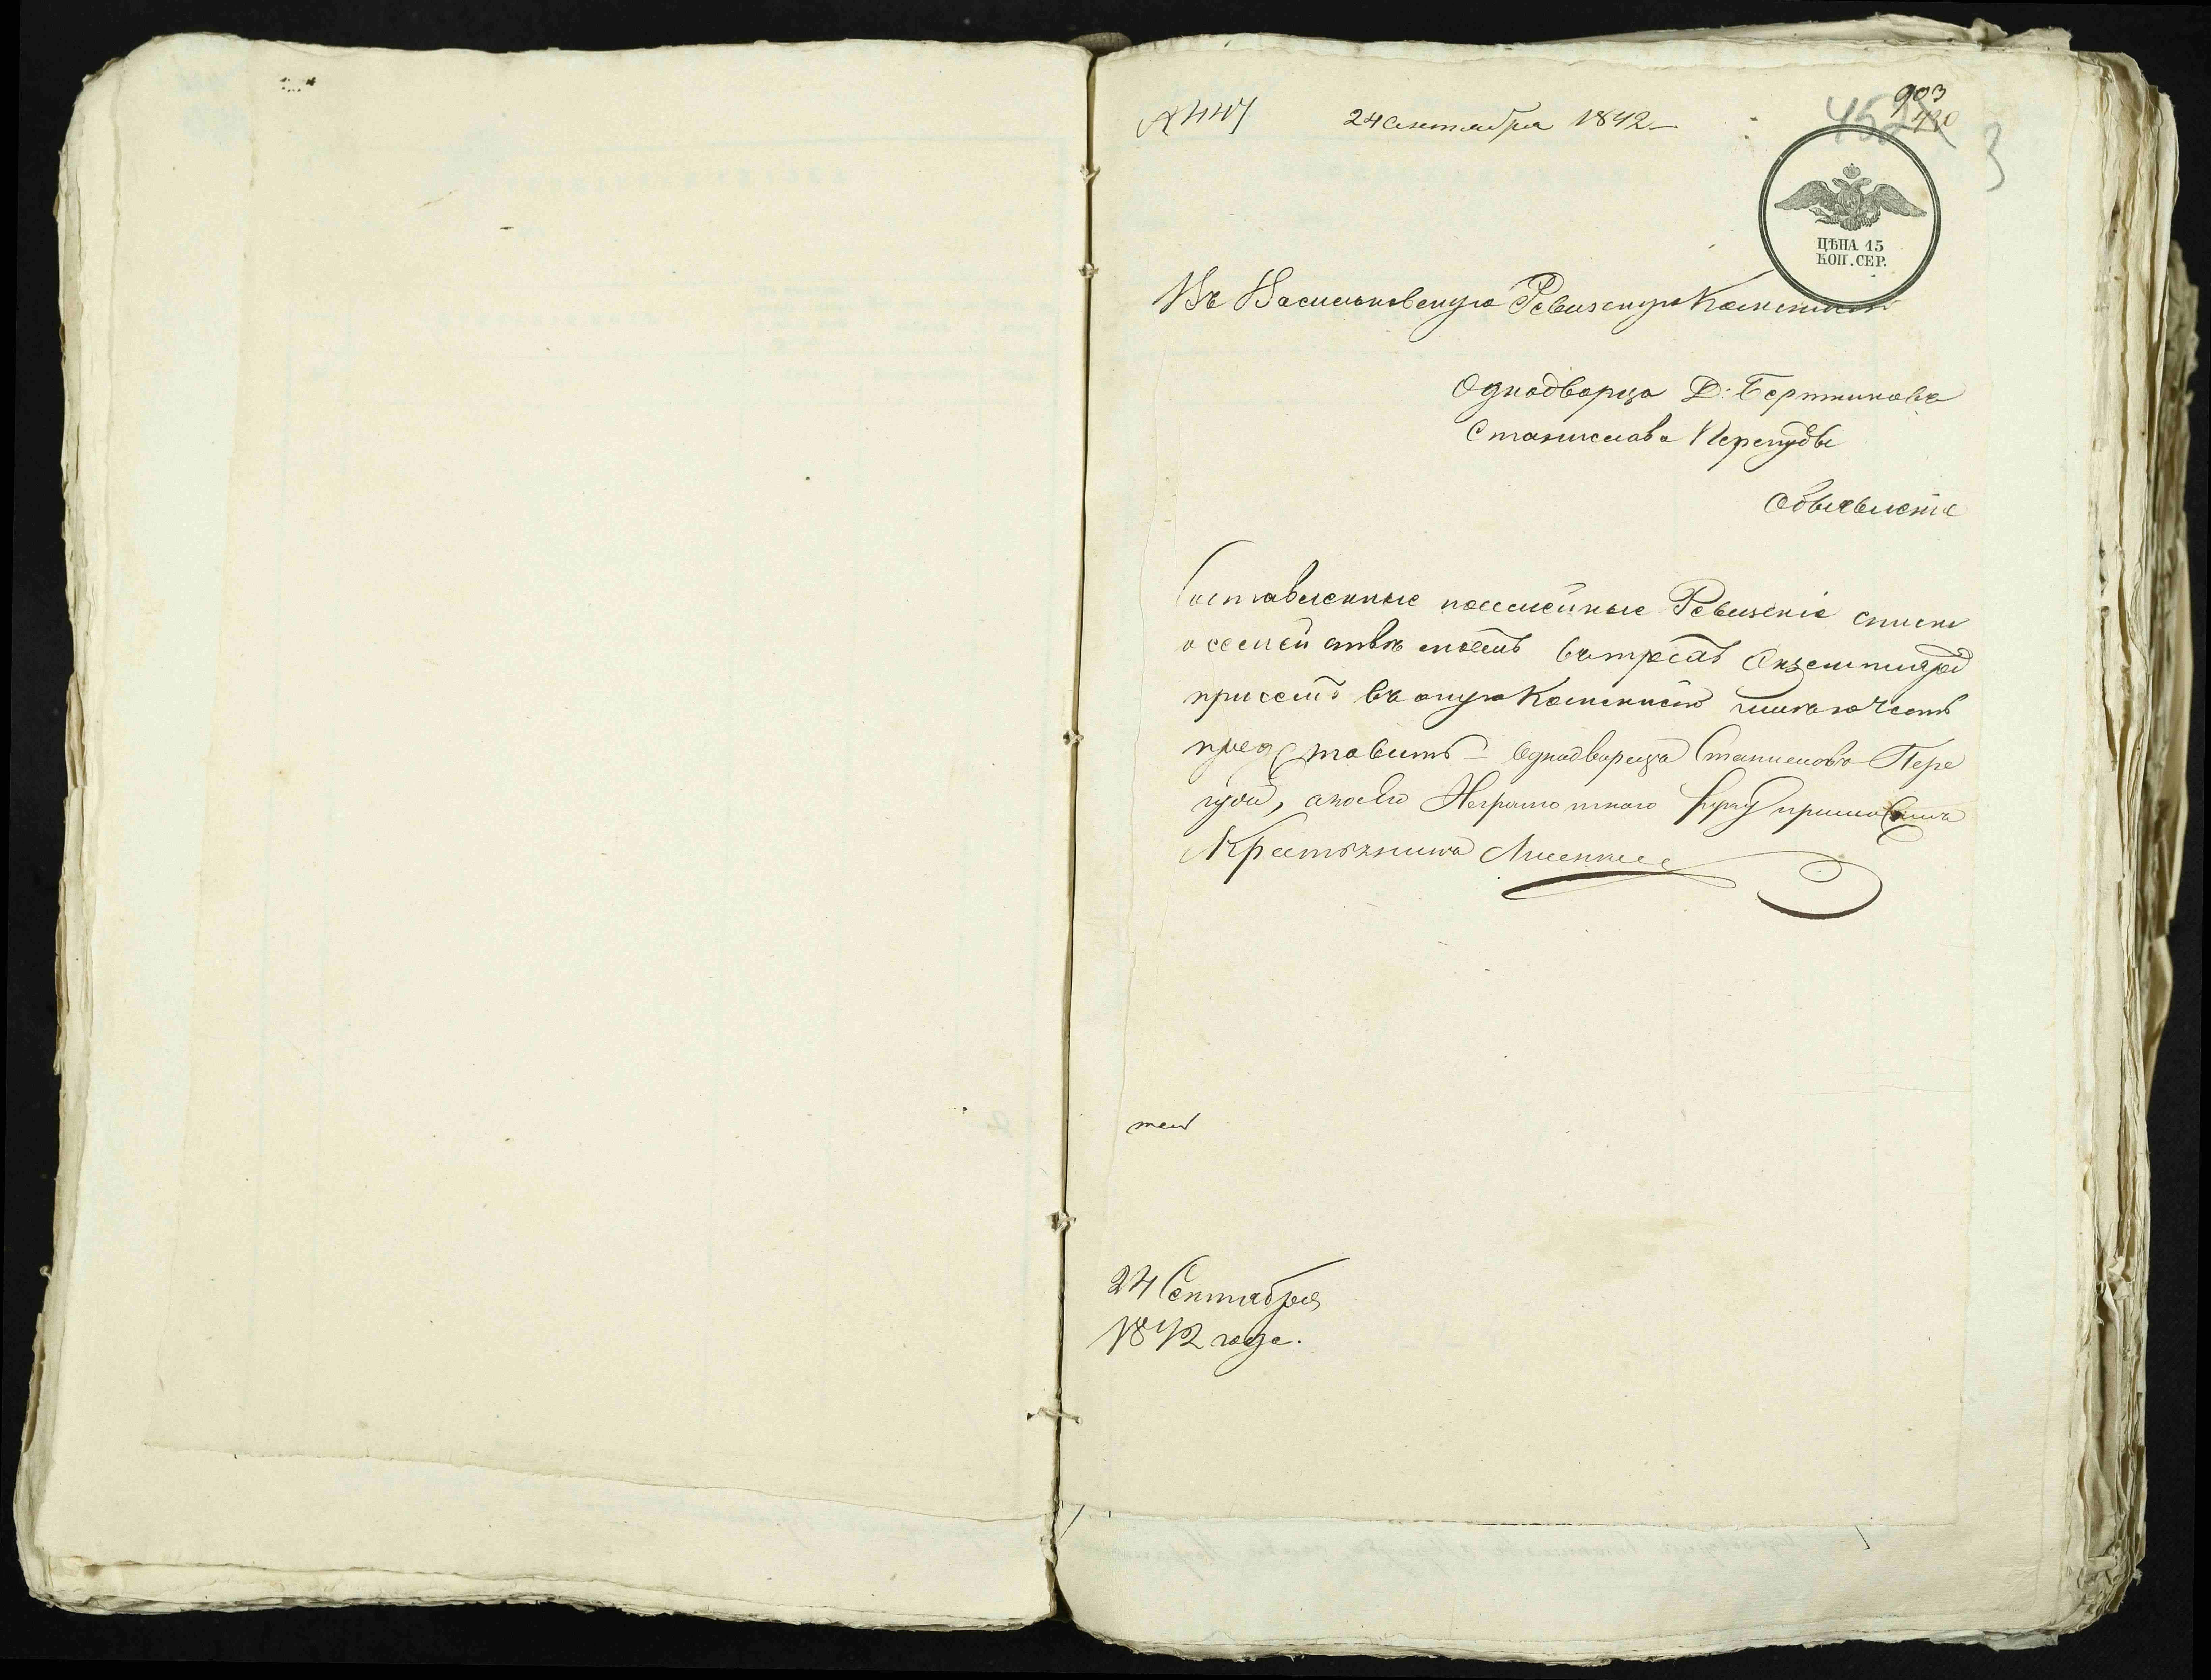 № 447 24 Сентября 1842
903
430
452
3
ЦѢНА 15
КОП. СЕР.
Въ Васильковскую Ревизскую Коммисію
Однодворца Д: Бертниковъ
Станислава Перегуды
Объявленіе
Составленные посемейные Ревизскіе списки
о семействѣ моемъ въ трехъ Экземплярахъ
при семъ въ оную Коммисію имѣю честь
представить Однодворецъ Станиславъ Пере
гуда, а по его Неграмотного руку приложилъ
Крестьянинъ
24 Сентября
1842 года.